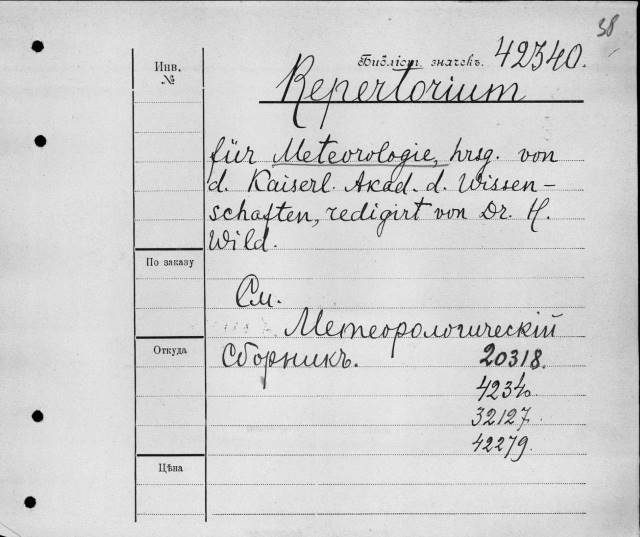 38
Инв.
№
Библіот. значекъ. 42340.
Repertorium
für Meteorologie, hrsg. von
d. Kaiserl. Akad. d. Wissen-
schaften, redigirt von Dr. H.
Wild.
По заказу
См.
Метеорологическій
Откуда
Сборникъ. 20318.
4234.
32127.
42279.
Цѣна